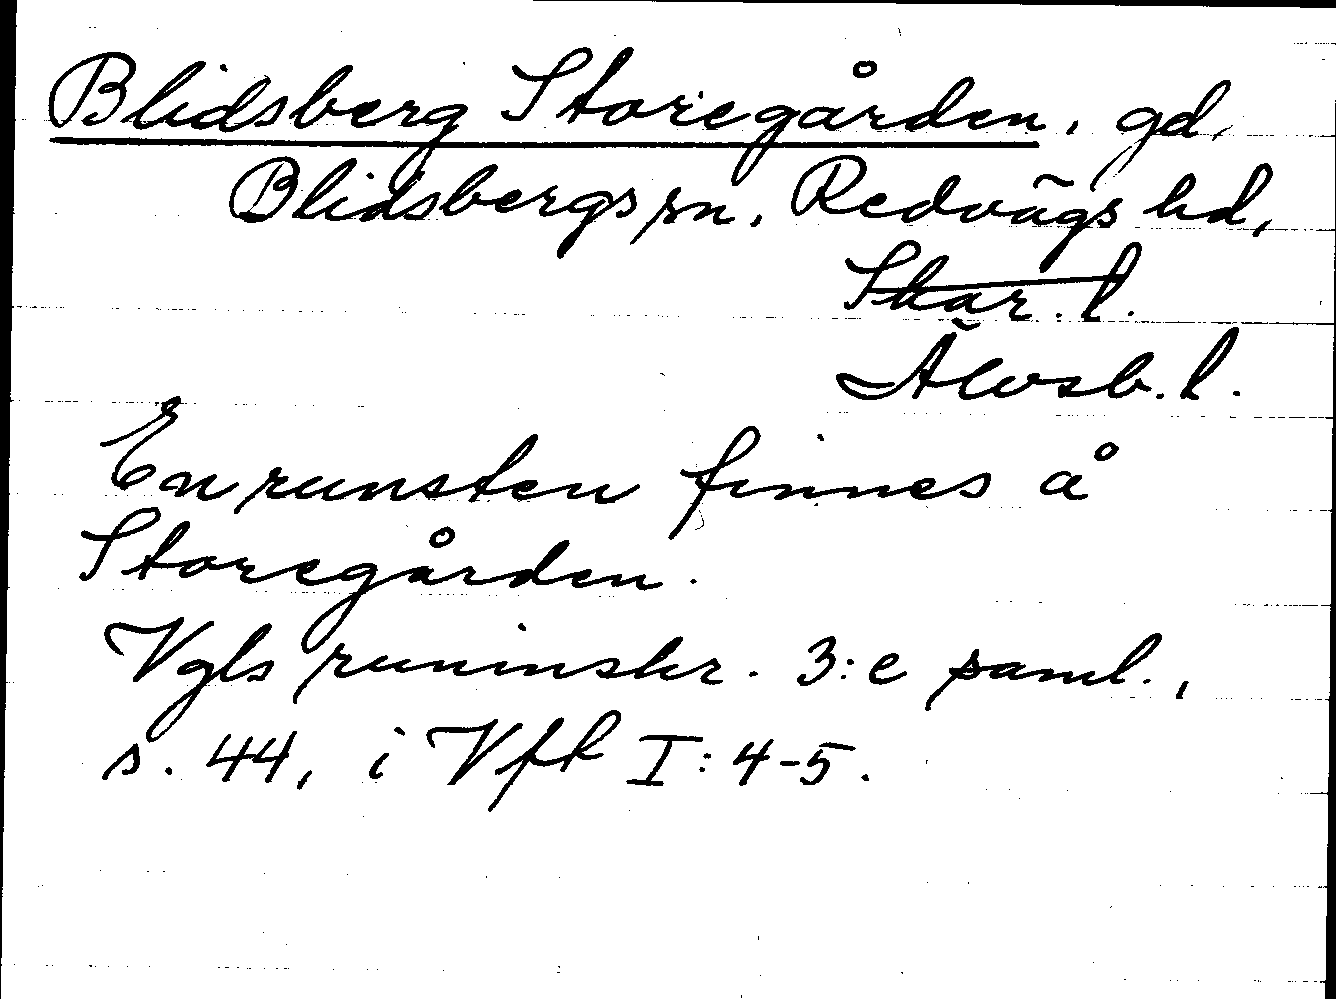 Blidsberg Storegården, gd,
Blidsbergs sn, Redvägs hd,
Skar. l.
Älvsb. l.
En runsten finnes å
Storegården.
Vgls runinskr. 3:e saml.,
s. 44, i Vft I:4-5.